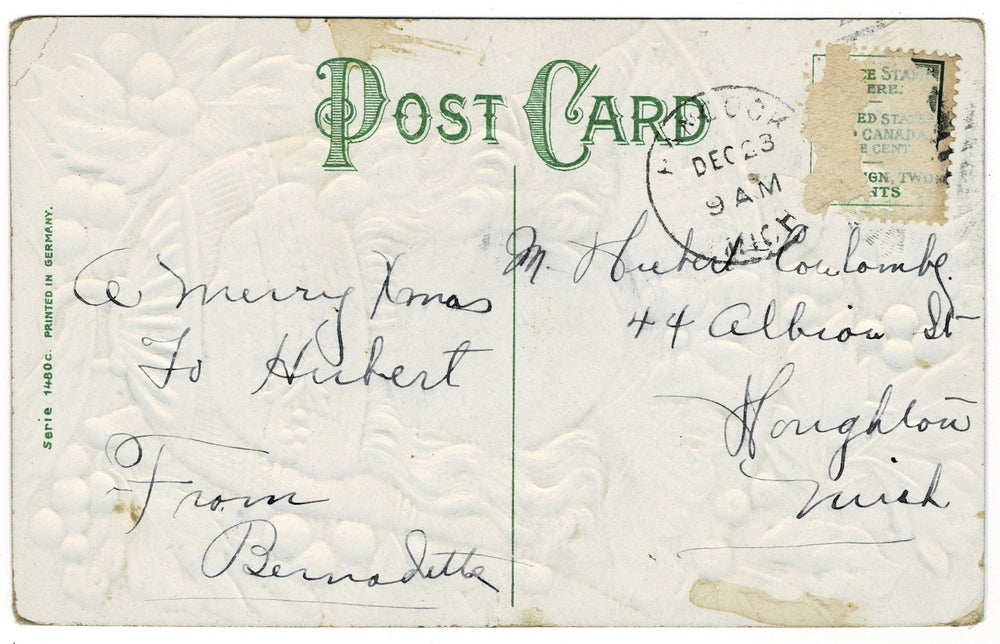 POST CARD
CE STAM
ERE.
ED STATE
CANADA
E CENT.
IGN, TWO
NTS
HANCOCK
DEC 23
9 AM
MICH
Serie 1480c. PRINTED IN GERMANY.
A Merry Xmas
To Hubert
From
Bernadette
M. Hubert Coulombe
44 Albion St
Houghton
Mich